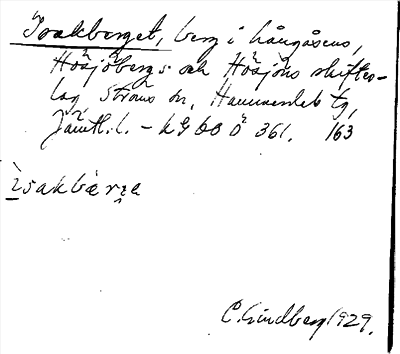 Isakberget, berg i Långåsens,
Hösjöbergs och Hösjöns skiftes-
lag, Ströms sn, Hammerdals tg,
Jämtl. l. – kG bb Ö 361. 163
isakbærɡe
C. Lindberg 1929.